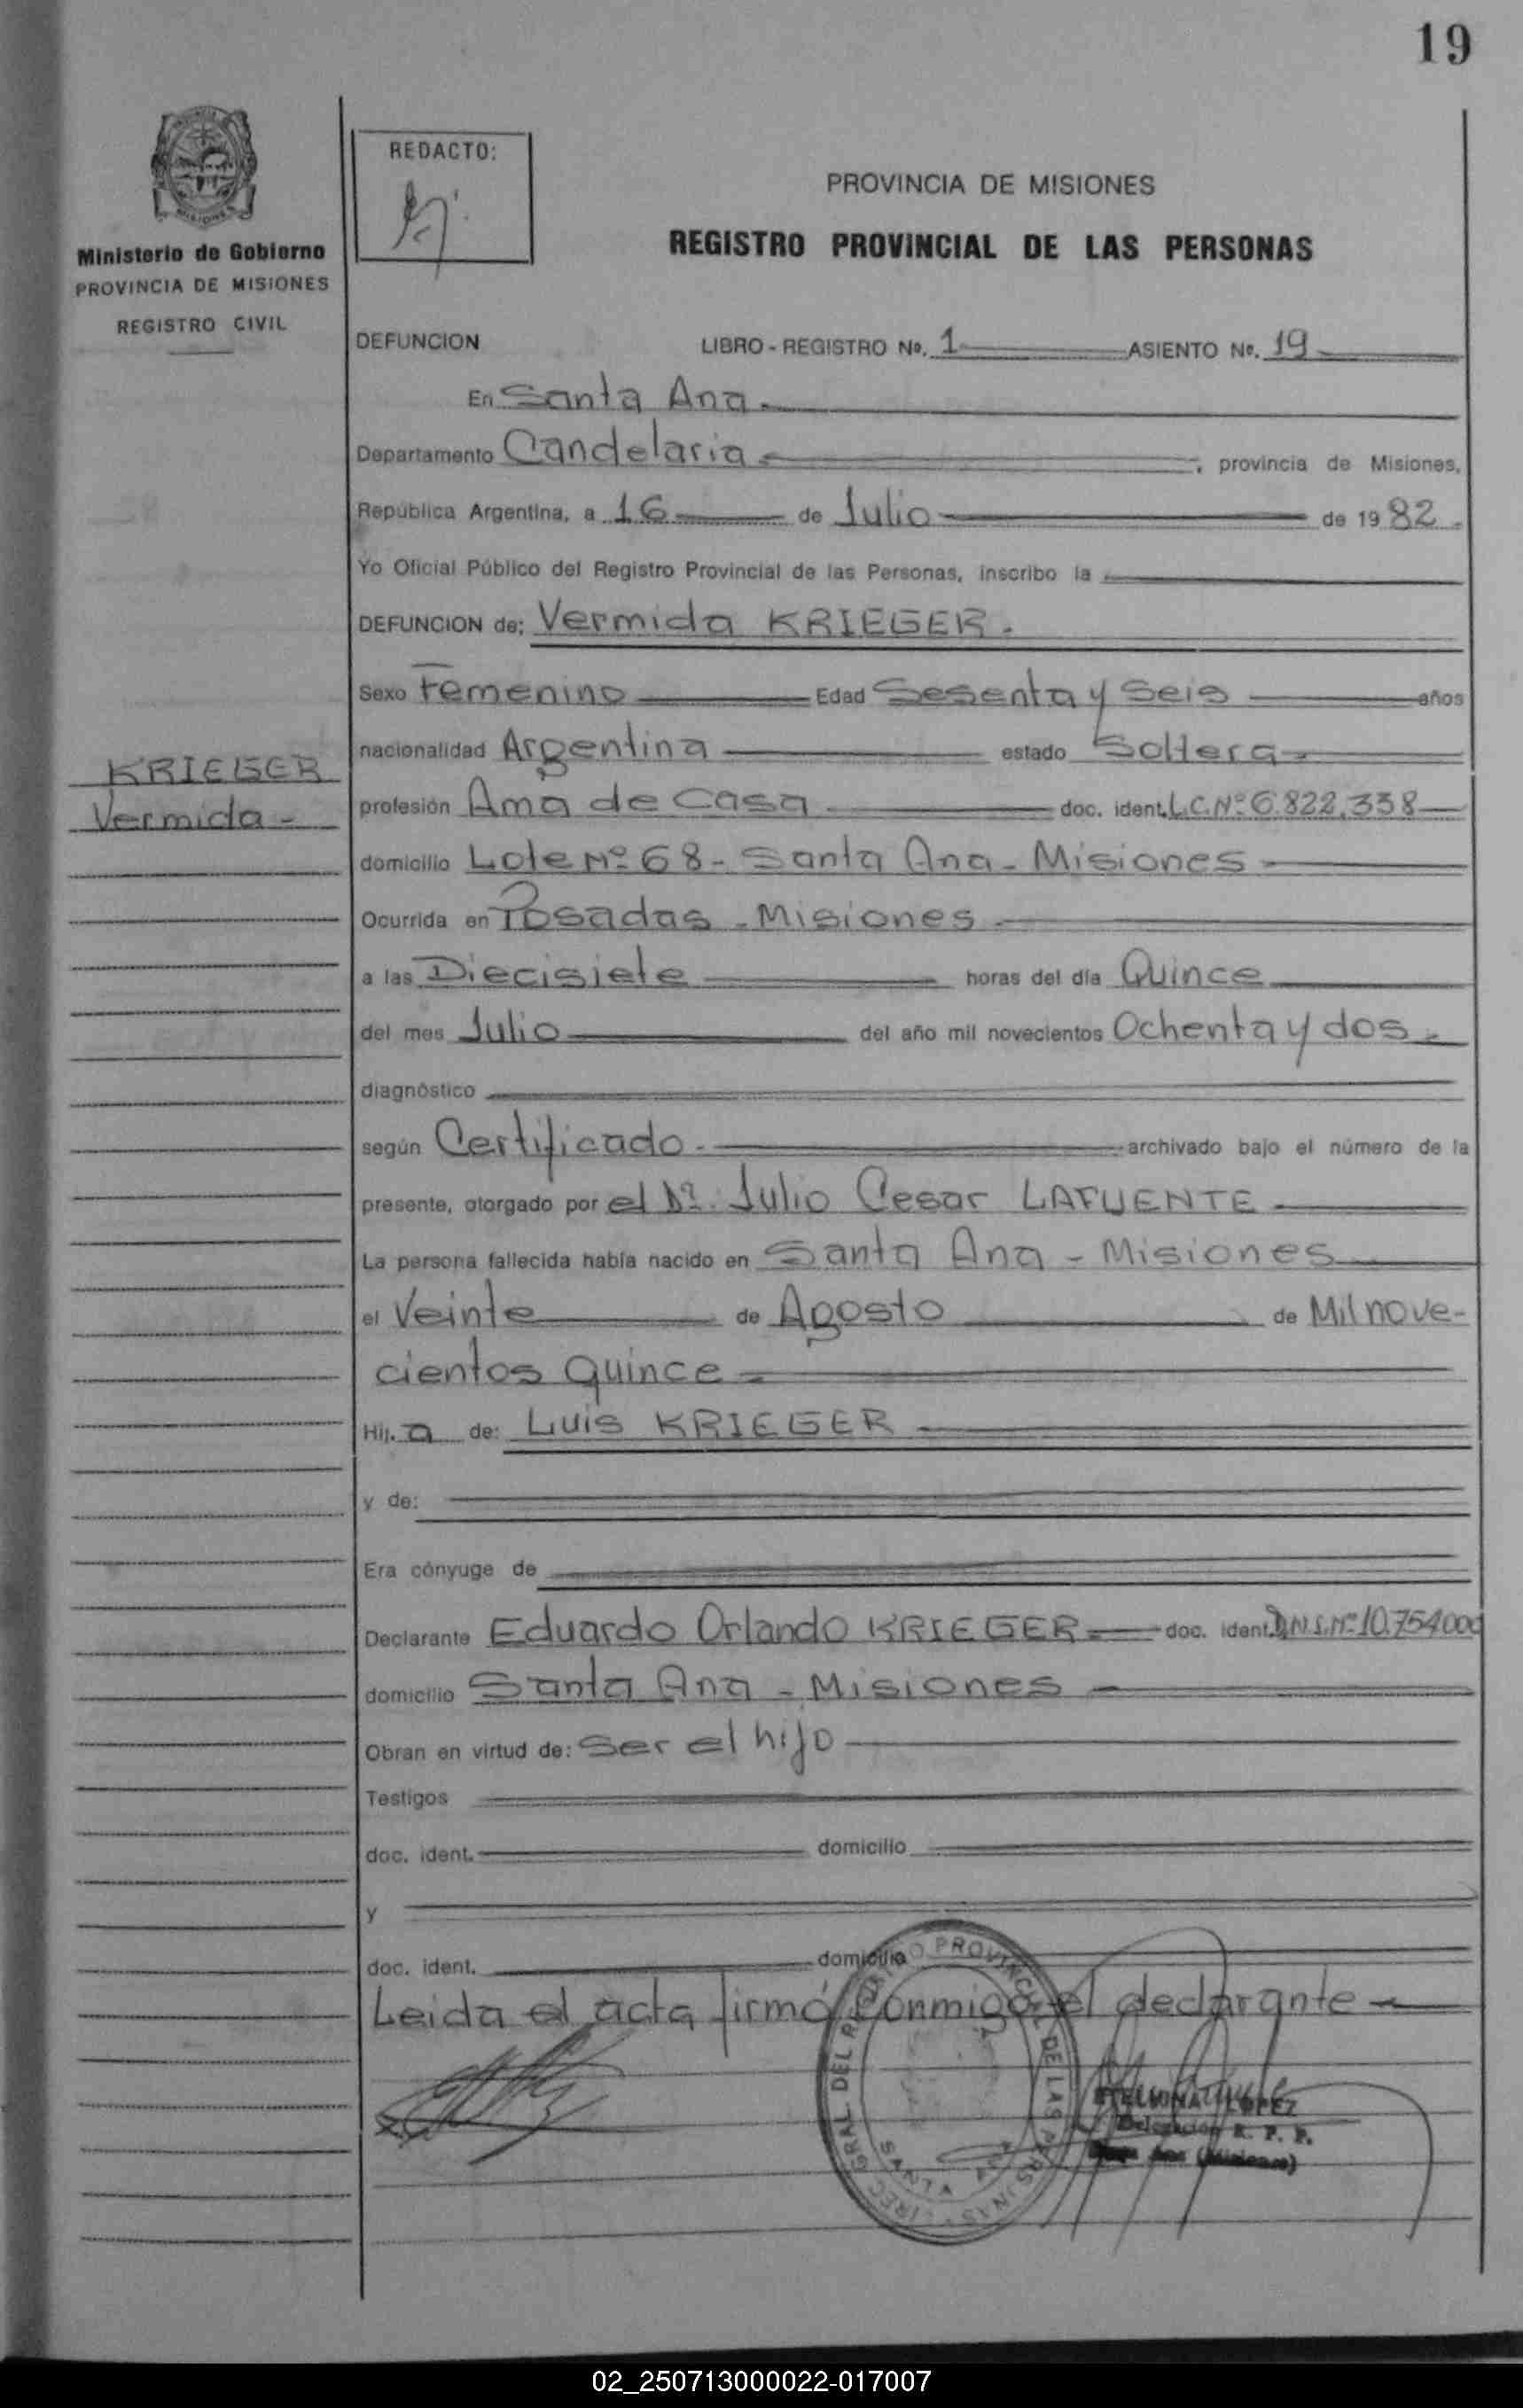 19
REDACTO:
PROVINCIA DE MISIONES
REGISTRO PROVINCIAL DE LAS PERSONAS
Ministerio de Gobierno
PROVINCIA DE MISIONES
REGISTRO CIVIL
DEFUNCION LIBRO - REGISTRO Nº. 1 ASIENTO Nº. 19
En Santa Ana
Departamento Candelaria , provincia de Misiones,
República Argentina, a 16 de Julio de 19 82
Yo Oficial Público del Registro Provincial de las Personas, inscribo la
DEFUNCION de: Vermida KRIEGER.
Sexo Femenino Edad Sesenta y Seis años
nacionalidad Argentina estado Soltera
KRIEGER
Vermida
profesión Ama de Casa doc. ident. L.C.Nº 6.822.338
domicilio Lote Nº 68 - Santa Ana - Misiones
Ocurrida en Posadas - Misiones
a las Diecisiete horas del día Quince
del mes Julio del año mil novecientos Ochenta y dos
diagnóstico
según Certificado archivado bajo el número de la
presente, otorgado por el Dr. Julio Cesar LAFUENTE
La persona fallecida había nacido en Santa Ana - Misiones
el Veinte de Agosto de Mil nove-
cientos quince
Hij. a de: Luis KRIEGER
y de:
Era cónyuge de
Declarante Eduardo Orlando KRIEGER doc. ident. D.N.I. Nº 10.754.000
domicilio Santa Ana - Misiones
Obran en virtud de: Ser el hijo
Testigos
doc. ident. domicilio
y
doc. ident. domicilio
Leida el acta firmó conmigo el declarante
GRAL DEL REGISTRO PROVINCIAL DE LAS PERSONAS
LOPEZ
Delegación R. P. P.
(Misiones)
02_250713000022-017007